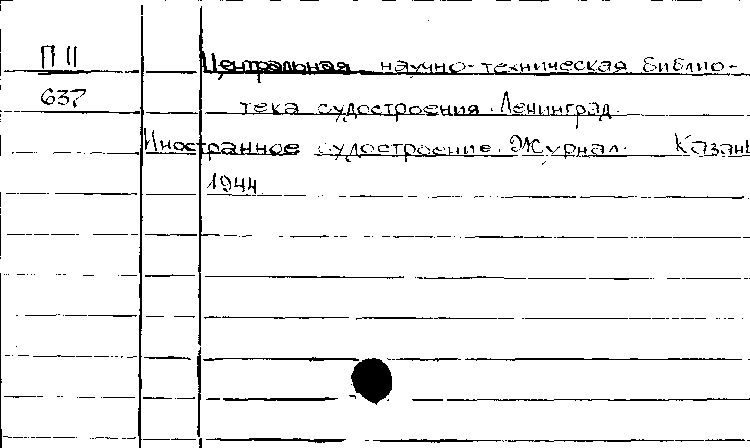 П II Центральная научно-техническая библио-
637 тека судостроения. Ленинград.
Иностранное судостроение. Журнал. Казань
1944